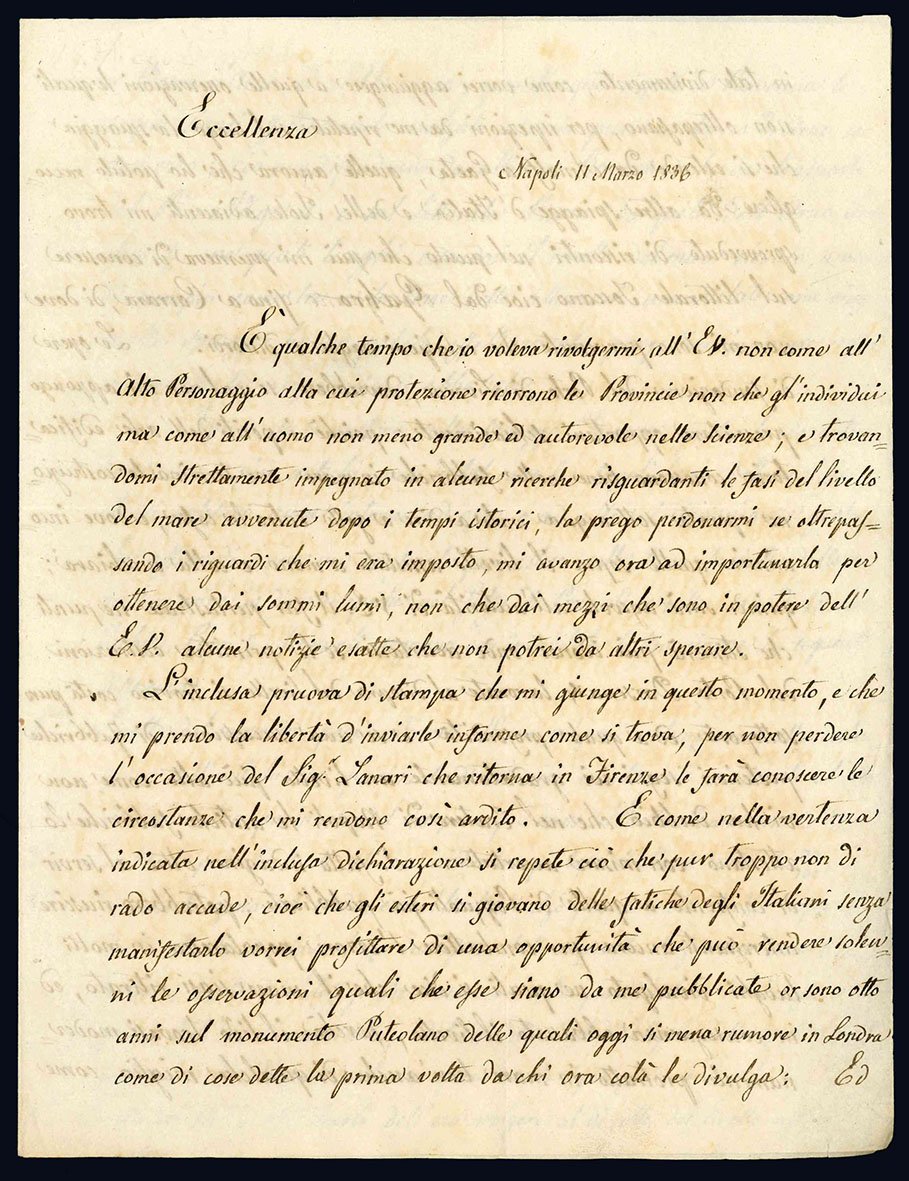 Eccellenza
Napoli 11 Marzo 1836
È qualche tempo che io voleva rivolgermi all' E.V. non come all'
Alto Personaggio alla cui protezione ricorrono le Provincie non che gl' individui
ma come all' uomo non meno grande ed autorevole nelle scienze; e trovan=
domi strettamente impegnato in alcune ricerche risguardanti le fasi del livello
del mare avvenute dopo i tempi istorici, la prego perdonarmi se oltrepas=
sando i riguardi che mi era imposto, mi avanzo ora ad importunarla per
ottenere dai sommi lumi, non che dai mezzi che sono in potere dell'
E.V. alcune notizie esatte che non potrei da altri sperare.
L'inclusa pruova di stampa che mi giunge in questo momento, e che
mi prendo la libertà d'inviarle informe come si trova, per non perdere
l'occasione del Sig.r Lanari che ritorna in Firenze le farà conoscere le
circostanze che mi rendono così ardito. E come nella vertenza
indicata nell'inclusa dichiarazione si repete ciò che pur troppo non di
rado accade, cioè che gli esteri si giovano delle fatiche degli Italiani senza
manifestarlo vorrei profittare di una opportunità che può rendere solen=
ni le osservazioni quali che esse siano da me pubblicate or sono otto
anni sul monumento Puteolano delle quali oggi si mena rumore in Londra
come di cose dette la prima volta da chi ora colà le divulga: Ed